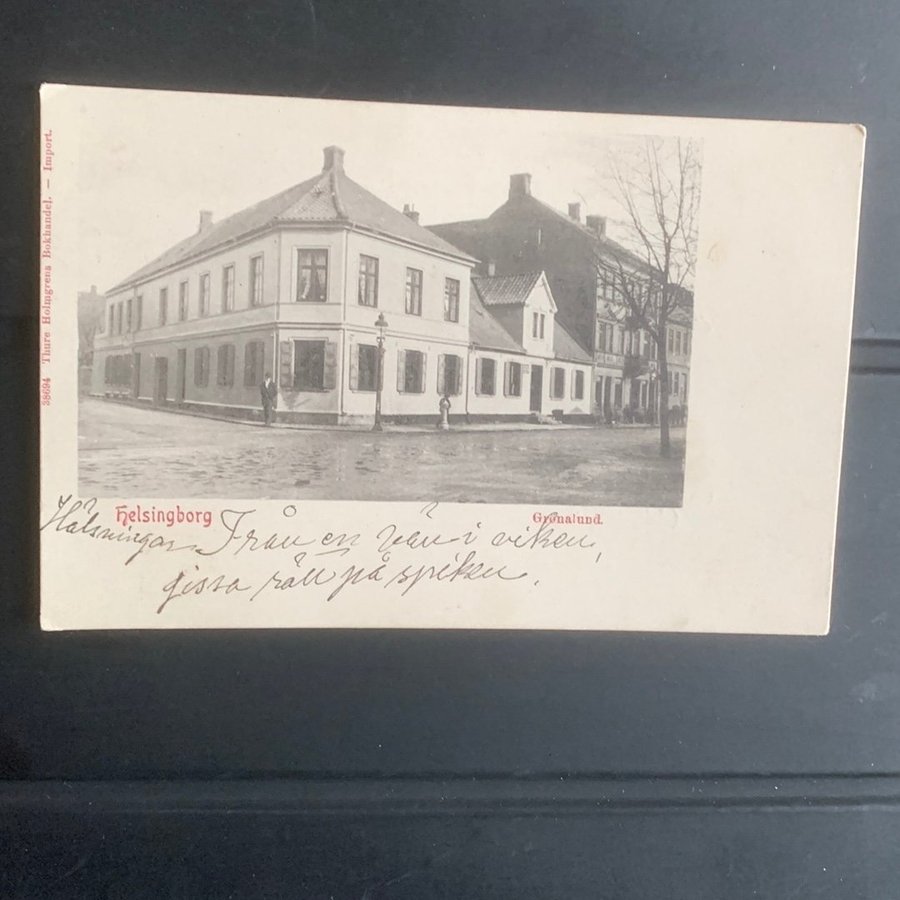 38694 Thure Holmgrens Bokhandel. — Import.
Helsingborg
Grönalund.
Hälsningar Från en vän i viken,
gissa rätt på spiken.